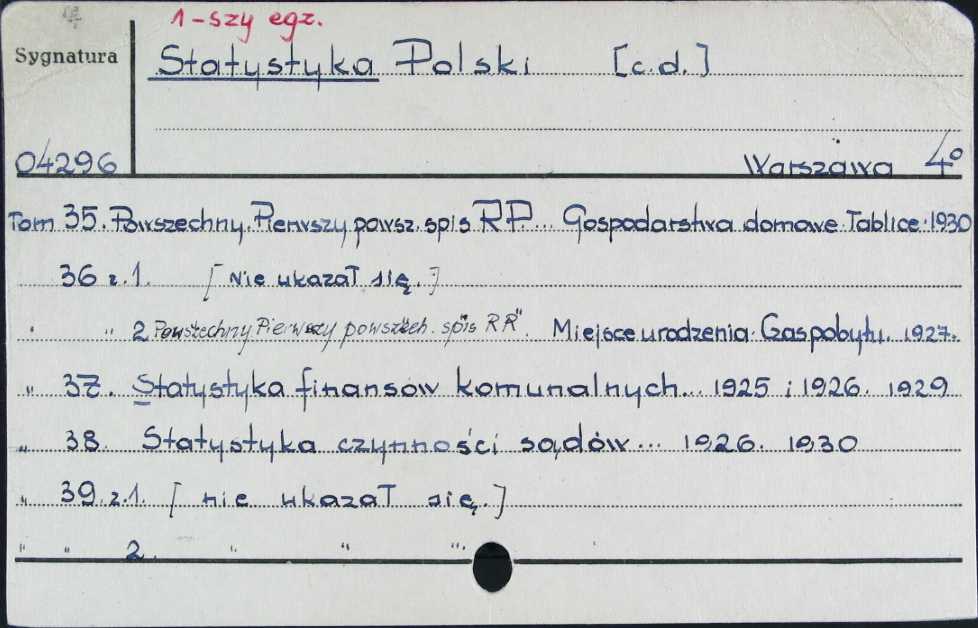 1-szy egz.
Sygnatura
Statystyka Polski [c.d.]
04296
Warszawa 4°
Tom 35. Powszechny. Pierwszy powsz. spis R.P.... Gospodarstwa domowe. Tablice. 1930
36 z.1. [Nie ukazał się.]
" " 2 Powszechny Pierwszy powszech. spis Miejsce urodzenia. 1927.
" 37. Statystyka finansów komunalnych... 1925 i 1926. 1929
" 38. Statystyka czynności sądów... 1926. 1930
" 39. z.1. [nie ukazał się.]
" " 2. " " "